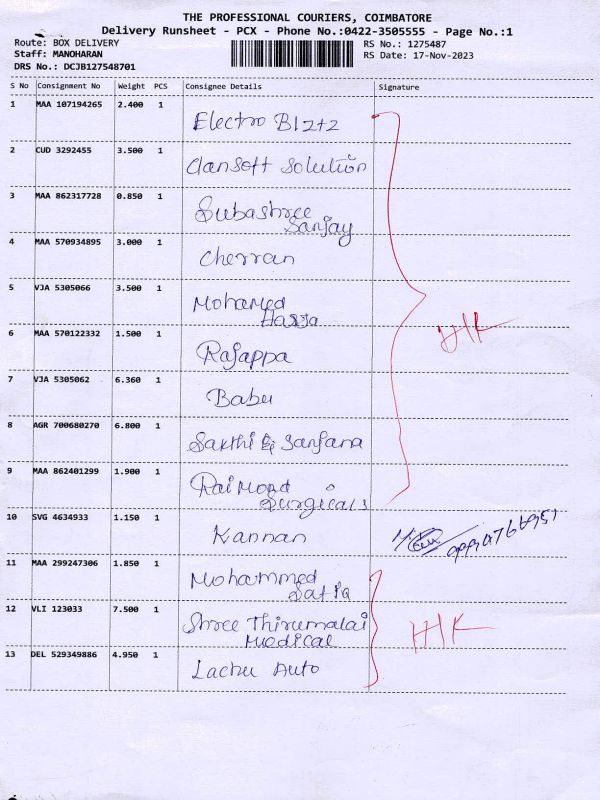 THE PROFESSIONAL COURIERS, COIMBATORE
Delivery Runsheet - PCX - Phone No.:0422-3505555 - Page No.:1
Route: BOX DELIVERY
Staff: MANOHARAN
DRS No.: DCJB127548701
RS No.: 1275487
RS Date: 17-Nov-2023
S No Consignment No Weight PCS Consignee Details Signature
1 MAA 107194265 2.400 1 Electro Blztz
2 CUD 3292455 3.500 1 Clansoft Solution
3 MAA 862317728 0.850 1 Subashree
Sanjay
4 MAA 570934895 3.000 1 Cherran
5 VJA 5305066 3.500 1 Mohamed
Hassa
H/K
6 MAA 570122332 1.500 1 Rajappa
7 VJA 5305062 6.360 1 Babu
8 AGR 700680270 6.800 1 Sakthi & Sanjana
9 MAA 862401299 1.900 1 Raimond
Surgicals
10 SVG 4634933 1.150 1 Kannan
11 MAA 299247306 1.850 1 Mohammed
Safiq
12 VLI 123033 7.500 1 Shree Thirumalai
Medical
H/K
13 DEL 529349886 4.950 1 Lachu Auto